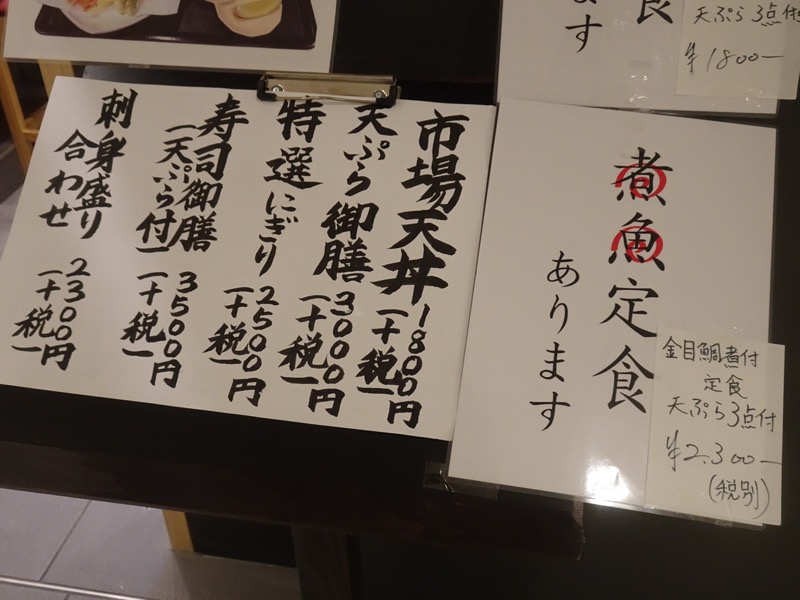 市場天丼 1800円
(+税)
天ぷら御膳 3000円
(+税)
特選にぎり 2500円
(+税)
寿司御膳
(天ぷら付) 3500円
(+税)
刺身盛り
合わせ 2300円
(+税)
定食
ます
天ぷら3点付
¥1800-
煮魚定食
あります
金目鯛煮付
定食
天ぷら3点付
¥2,300-
(税別)